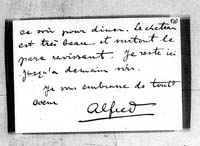 ce soir pour diner. Le chateau
est très beau et surtout le
parc ravissant. Je reste ici
jusqu'a demain soir.
Je vous embrasse de tout
coeur
Alfred